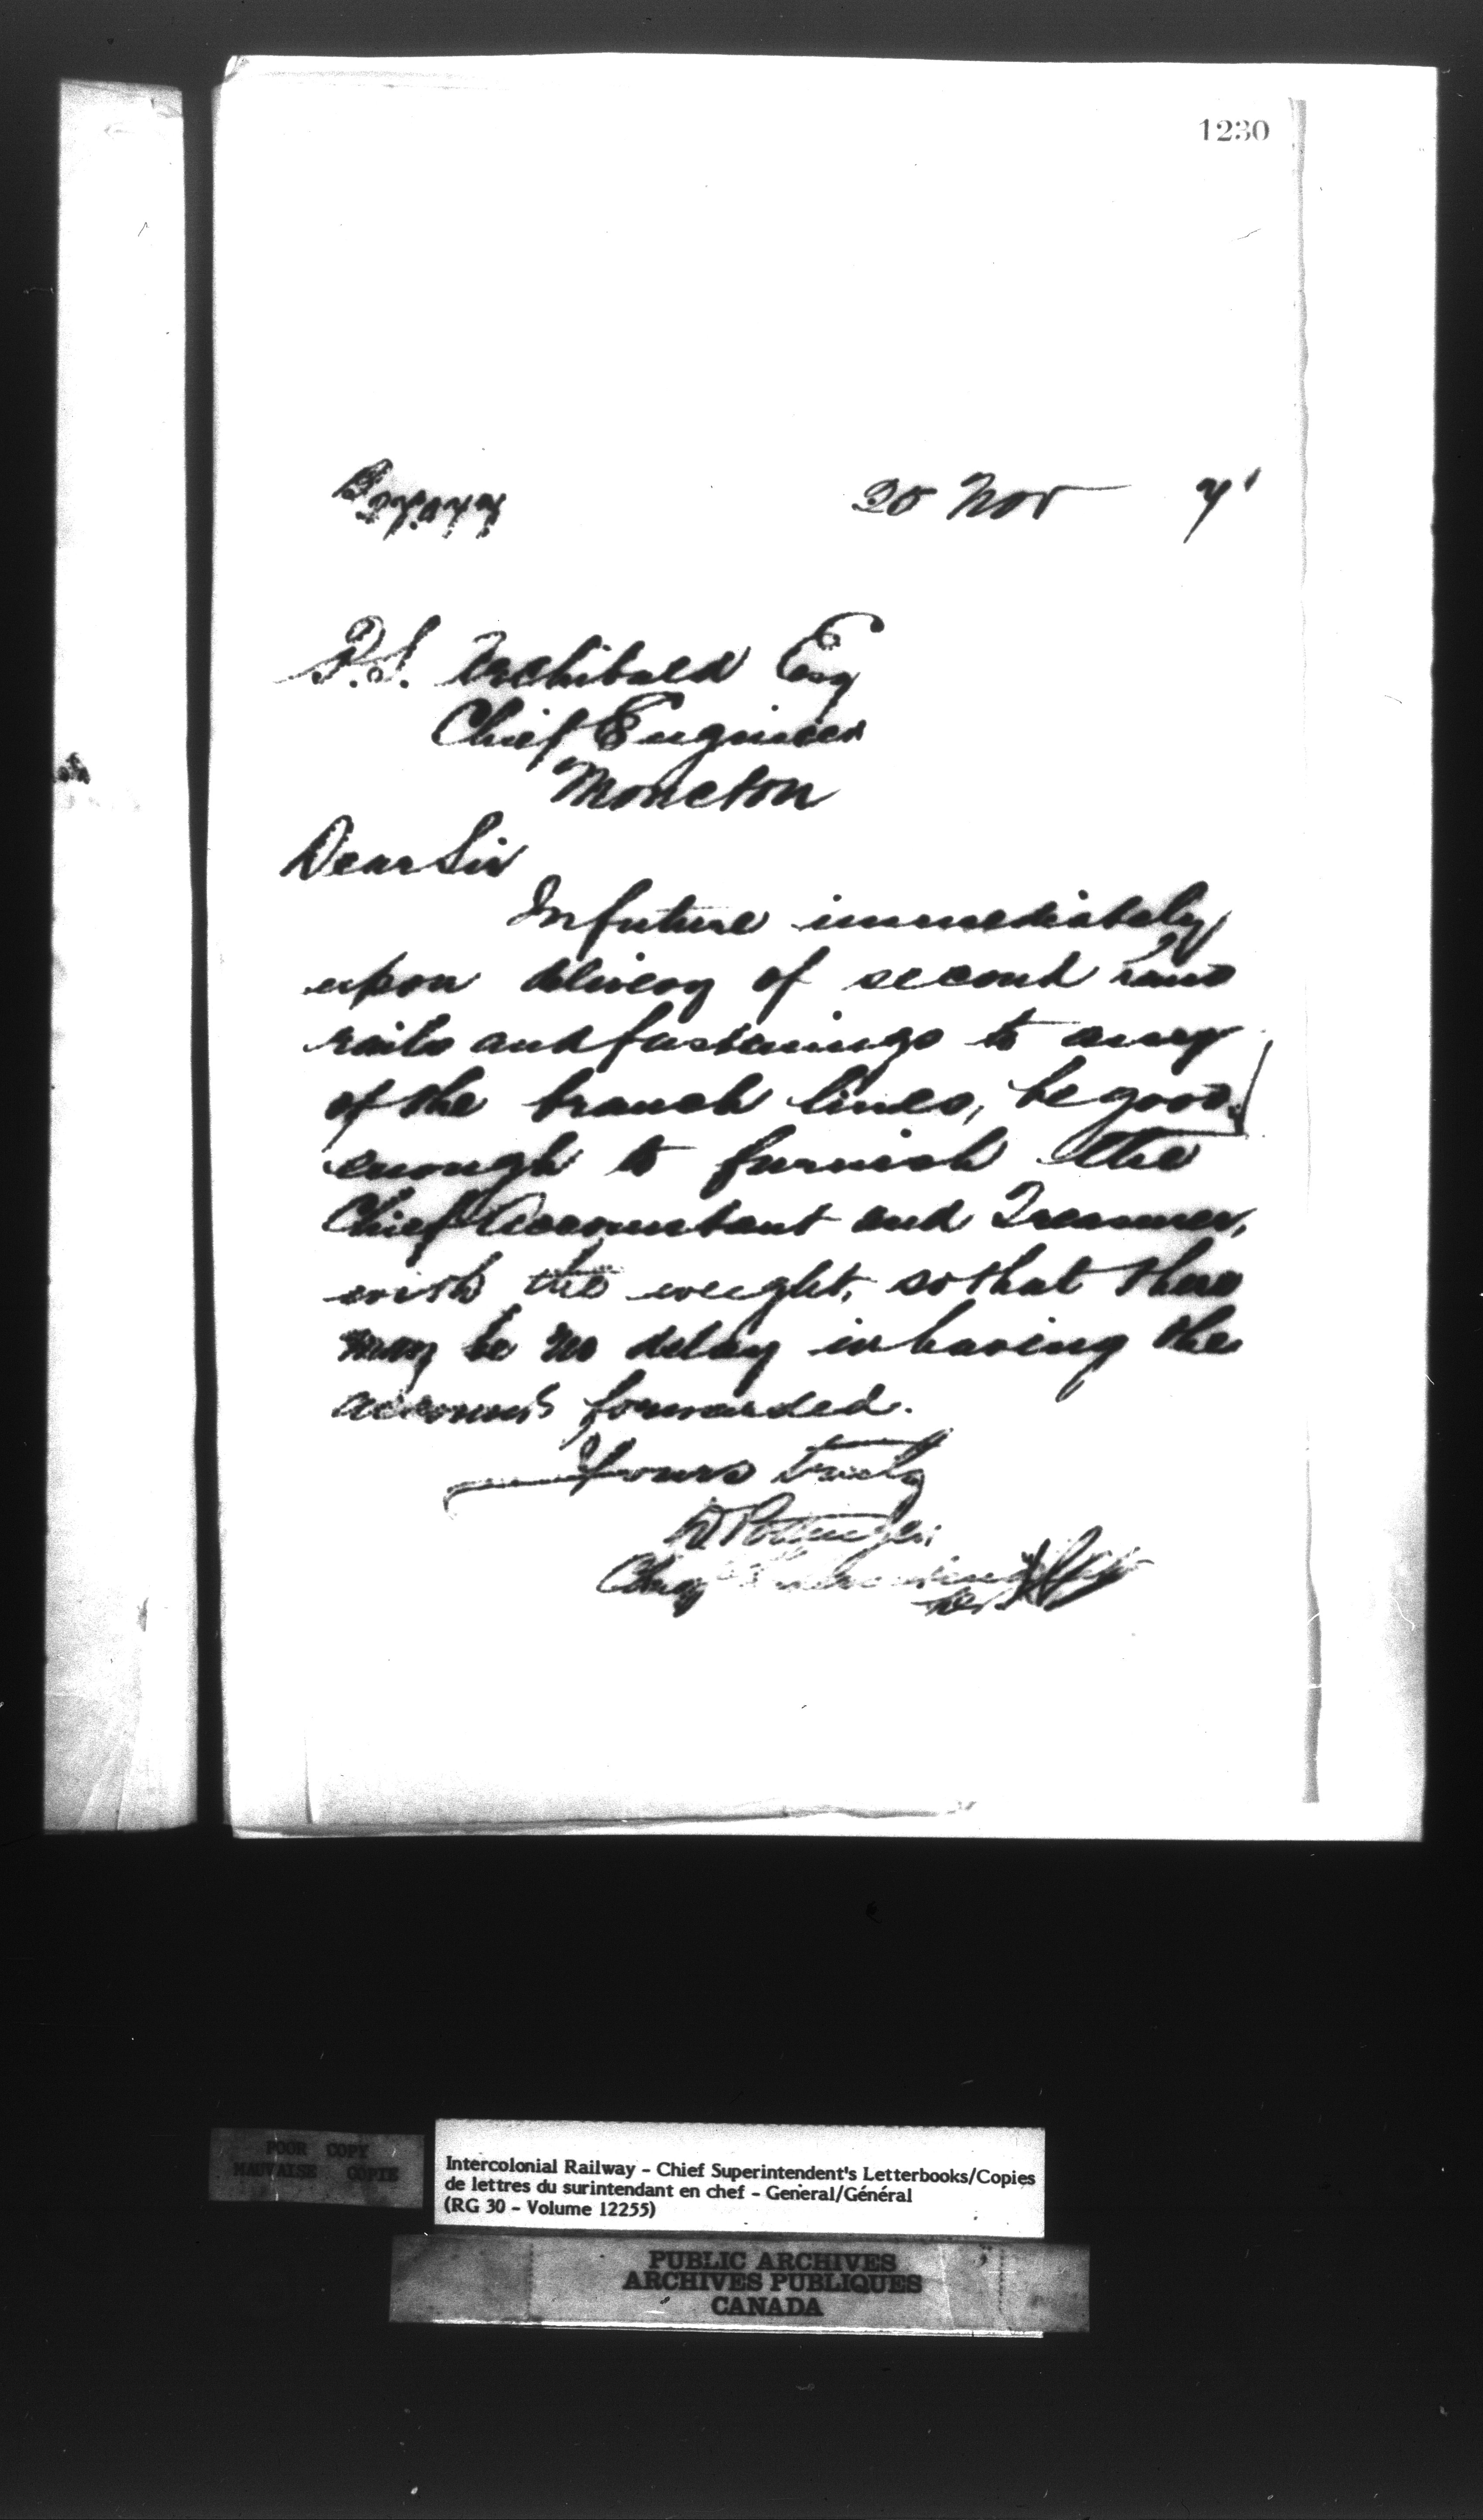 1230
20 Nov
P.S. Archibald Esq
Chief Engineer
Moncton
Dear Sir
In future immediately
upon delivery of second hand
rails and fastenings to any
of the branch lines, be good
enough to furnish the
Chief Accountant and Treasurer,
with the weight, so that there
may be no delay in having the
accounts forwarded.
Yours truly
D Pottinger
POOR COPY
MAUVAISE COPIE
Intercolonial Railway - Chief Superintendent's Letterbooks/Copies
de lettres du surintendant en chef - General/Général
(RG 30 - Volume 12255)
PUBLIC ARCHIVES
ARCHIVES PUBLIQUES
CANADA